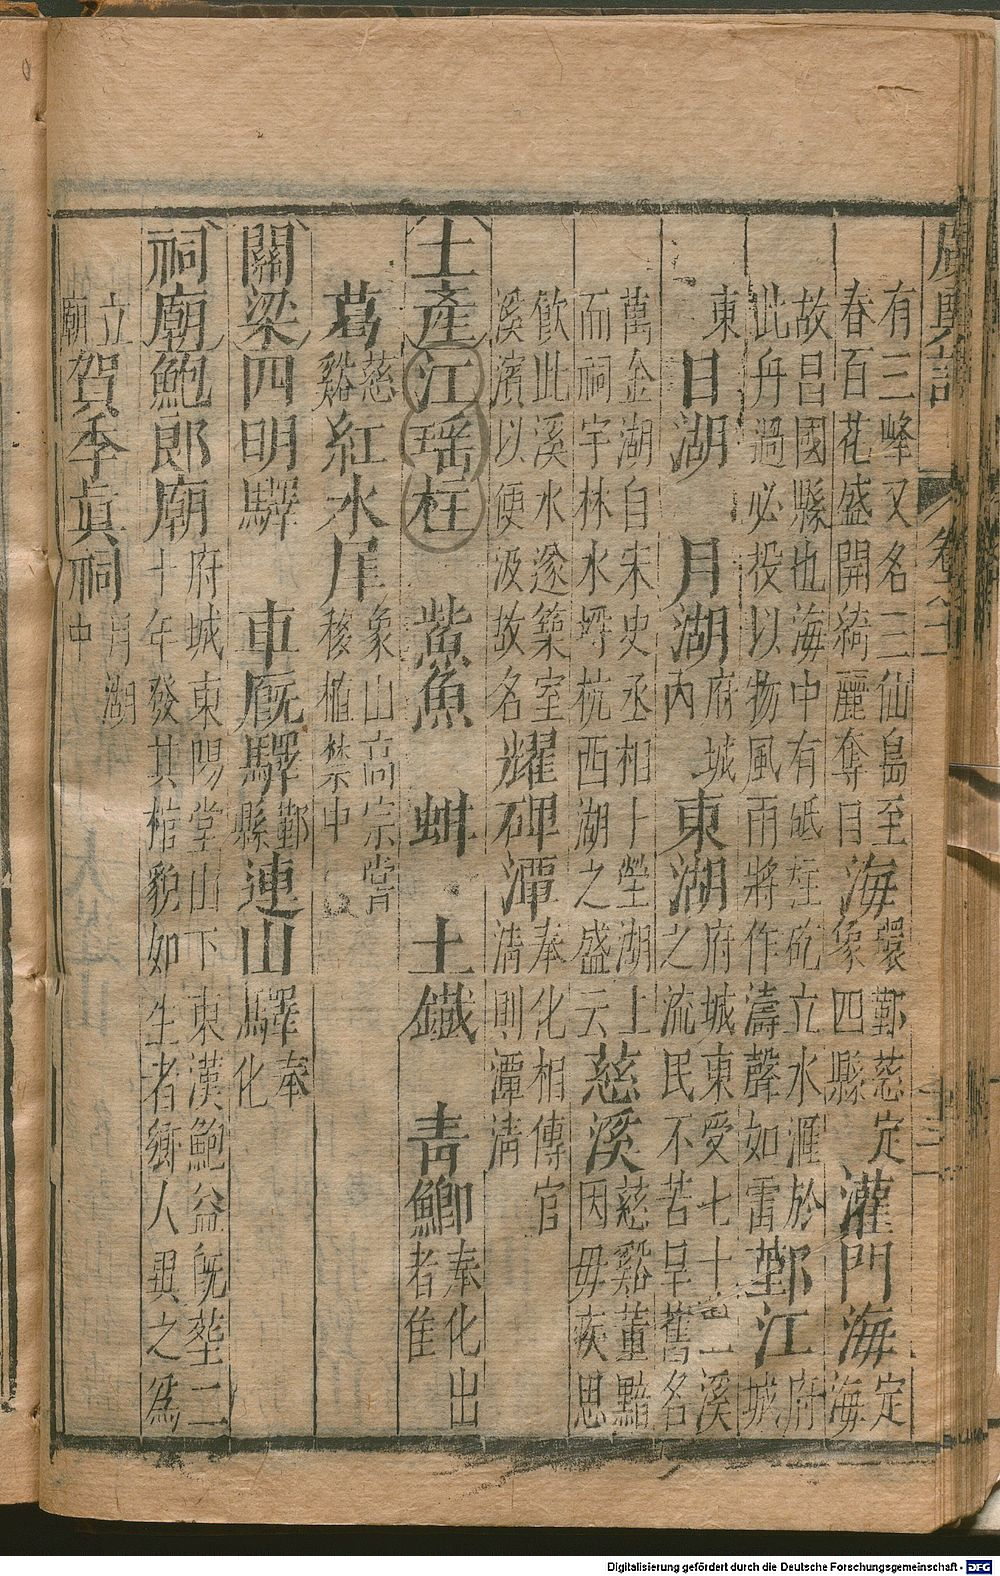 廣輿記 卷之十一
有三峰又名三仙島至
春百花盛開綺麗奪目海環鄞慈定
象四縣灌門海定
海
故昌國縣也海中有砥柱屹立水涯於
此舟過必投以物風雨將作濤聲如雷鄞江府
城
東日湖 月湖府城
內東湖府城東受七十二溪
之流民不苦旱舊名
萬金湖自宋史丞相卜塋湖上
而祠宇林水埒杭西湖之盛云慈溪慈谿董黯
因母疾思
飲此溪水遂築室
溪濱以便汲故名耀碑潭奉化相傳官
清則潭清
土產江瑤柱 鱟魚 蚶 土鐵 青鯽奉化出
者佳
葛慈
谿紅水犀象山高宗嘗
移植禁中
關梁四明驛 車廐驛鄞
縣連山驛奉
化
祠廟鮑郎廟府城東陽堂山下東漢鮑益旣塟二
十年發其棺貌如生者鄉人異之爲
立
廟賀季眞祠月湖
中
Digitalisierung gefördert durch die Deutsche Forschungsgemeinschaft - DFG